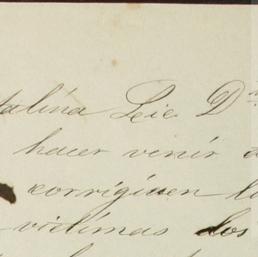 talina Leie. Dn
hacer venir a
corrigiuen lo
victimas los